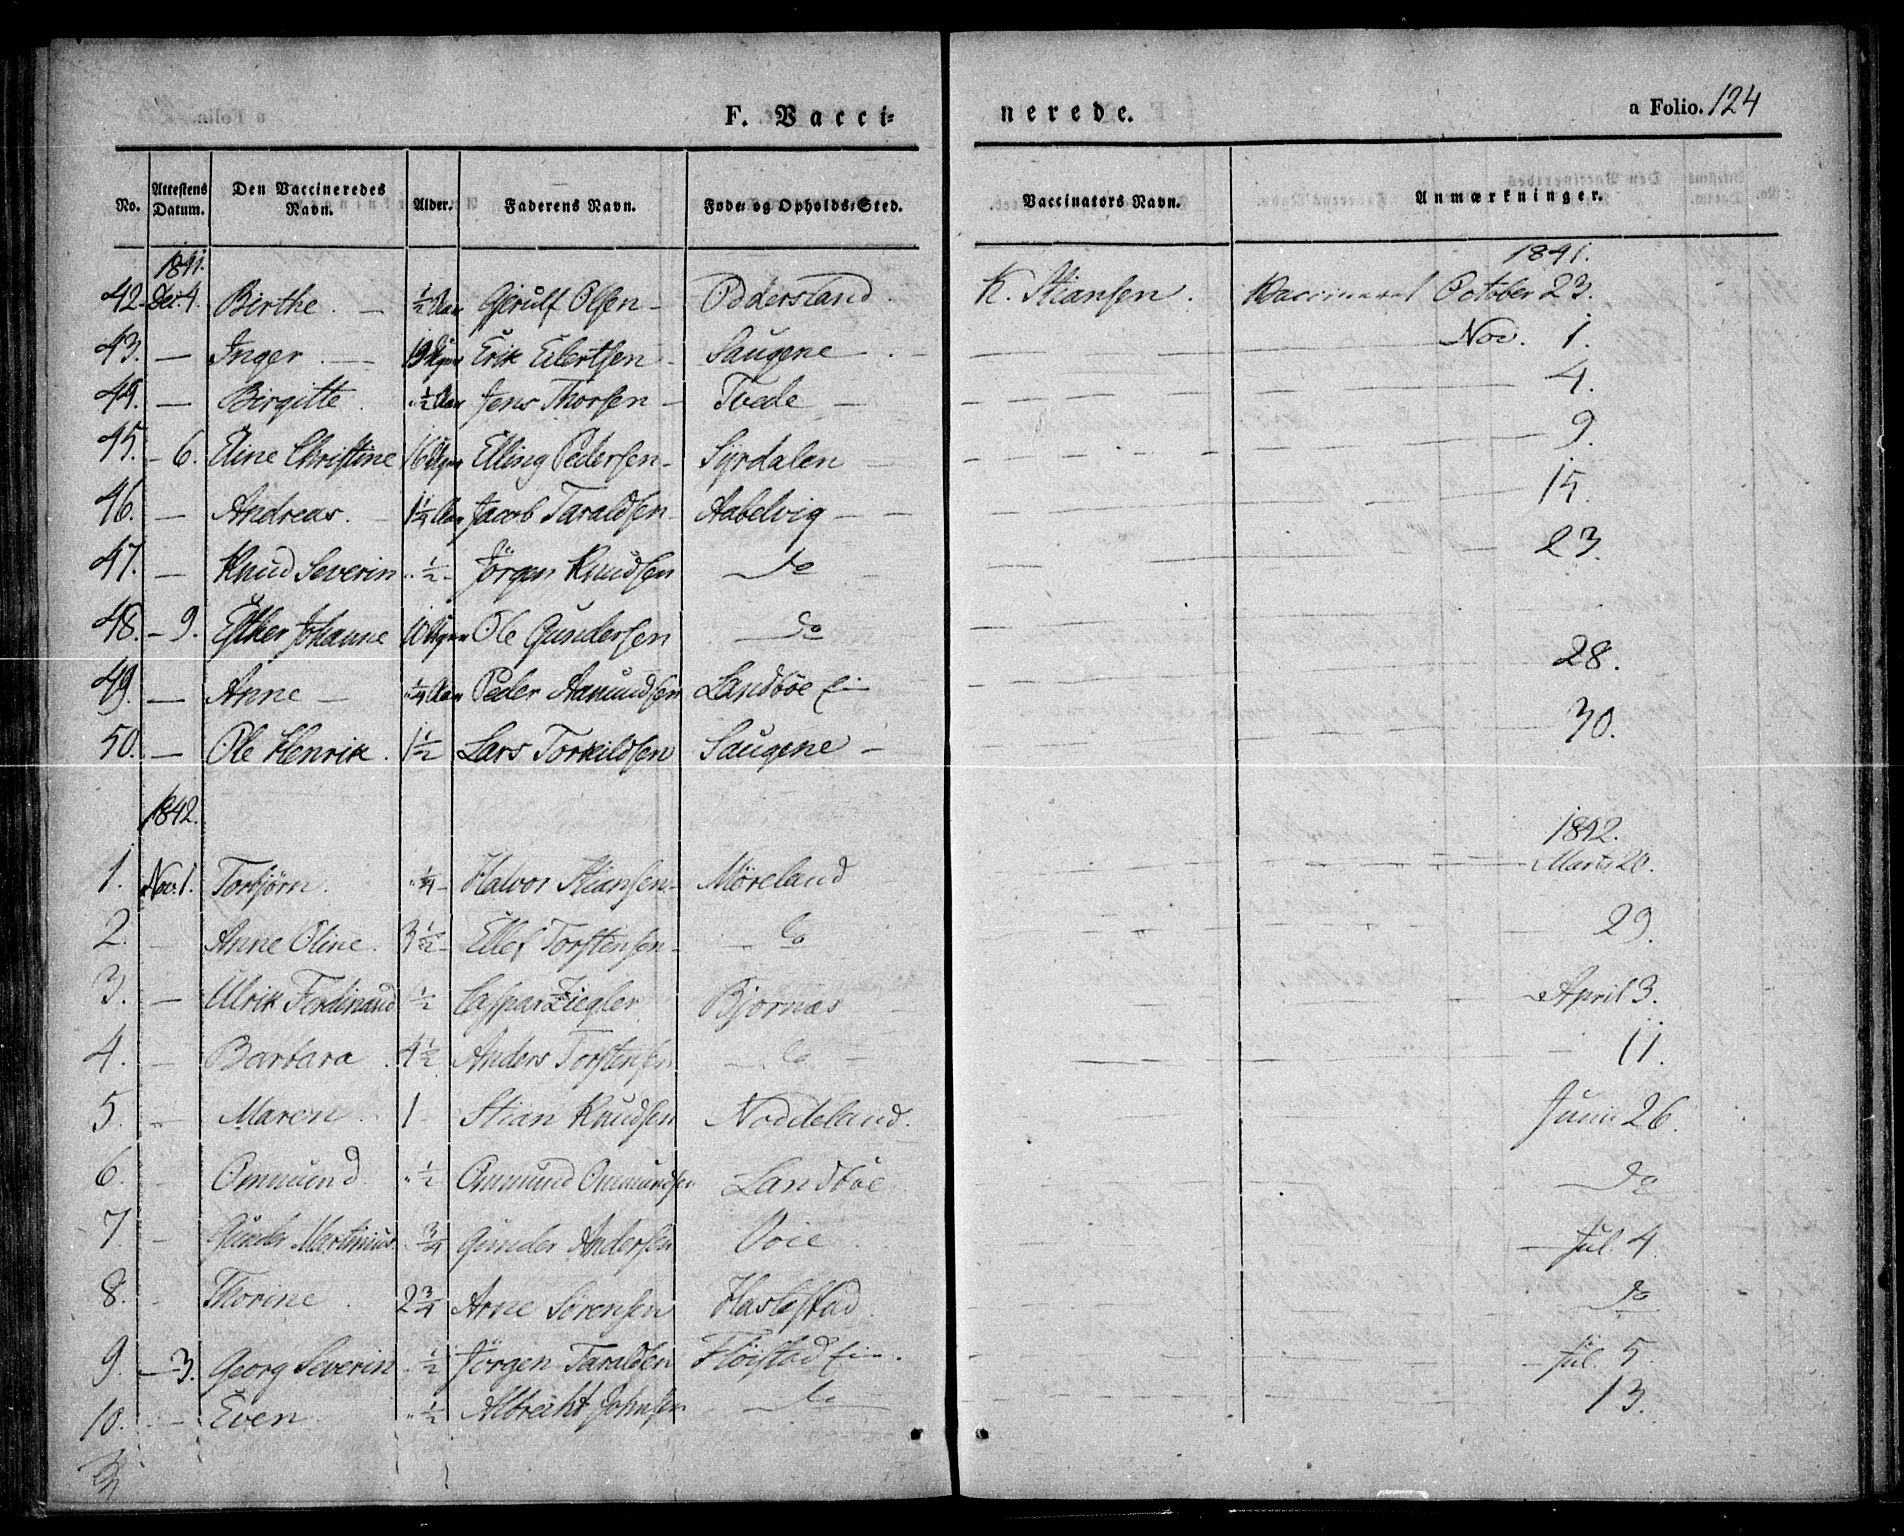 F. Vacci= nerede. a Folio. 124
No. Attestens Datum. Den Vaccineredes Navn. Alder. Faderens Navn. Føde= og Opholds=Sted. Vaccinators Navn. Anmærkninger.
1841. 1841.
42. Dec. 4. Birthe. — ½ Aar Gjerulf Olsen — Odderstand. K. Stiansen. Vaccineret October 23.
43. — Inger. — 19 Uger Erik Eilertsen — Saugene — Nov. 1.
44. — Birgitte. „½ Aar Jens Thorsen — Tvede — 4.
45. — 6. Eline Christine 16 Uger Elling Pedersen — Syrdalen — 9.
46. — Andreas. — 1¼ Aar Jacob Taraldsen — Aabelvig — 15.
47. — Knud Severin „½ — Jörgen Knudsen do — 23.
48. — 9. Esther Johanne 10 Uger Ole Gundersen do
49. — Anne — „¼ Aar Peder Aamundsen Landböe — 28.
50. — Ole Henrik. 1½ Lars Torkildsen Saugene — 30.
1842. 1842.
1. Nov. 1. Torbjörn. „¼ — Halvor Stiansen — Möreland — Marts 20.
2. — Anne Oline. 3½ — Ellef Torstensen — do 29.
3. — Ulrik Ferdinand ½ Caspar Ziegler Bjornas — April 3.
4. — Barbara. 4½ Anders Torstensen do — 11.
5. — Maren. 1 — Stian Knudsen Noddeland. Juni 26.
6. — Omund „½ Omund Omundsen Landböe do
7. — Gunder Martinius. ¾ Gunder Andersen Voie. — Jul. 4.
8. — Thorine. 2¾ Arne Sörensen Haslestad. do
9. — 3. Georg Severin „½ Jörgen Taraldsen Flöistad — Jul. 5.
10. — Even. „½ Albrecht Johnsen do 13.